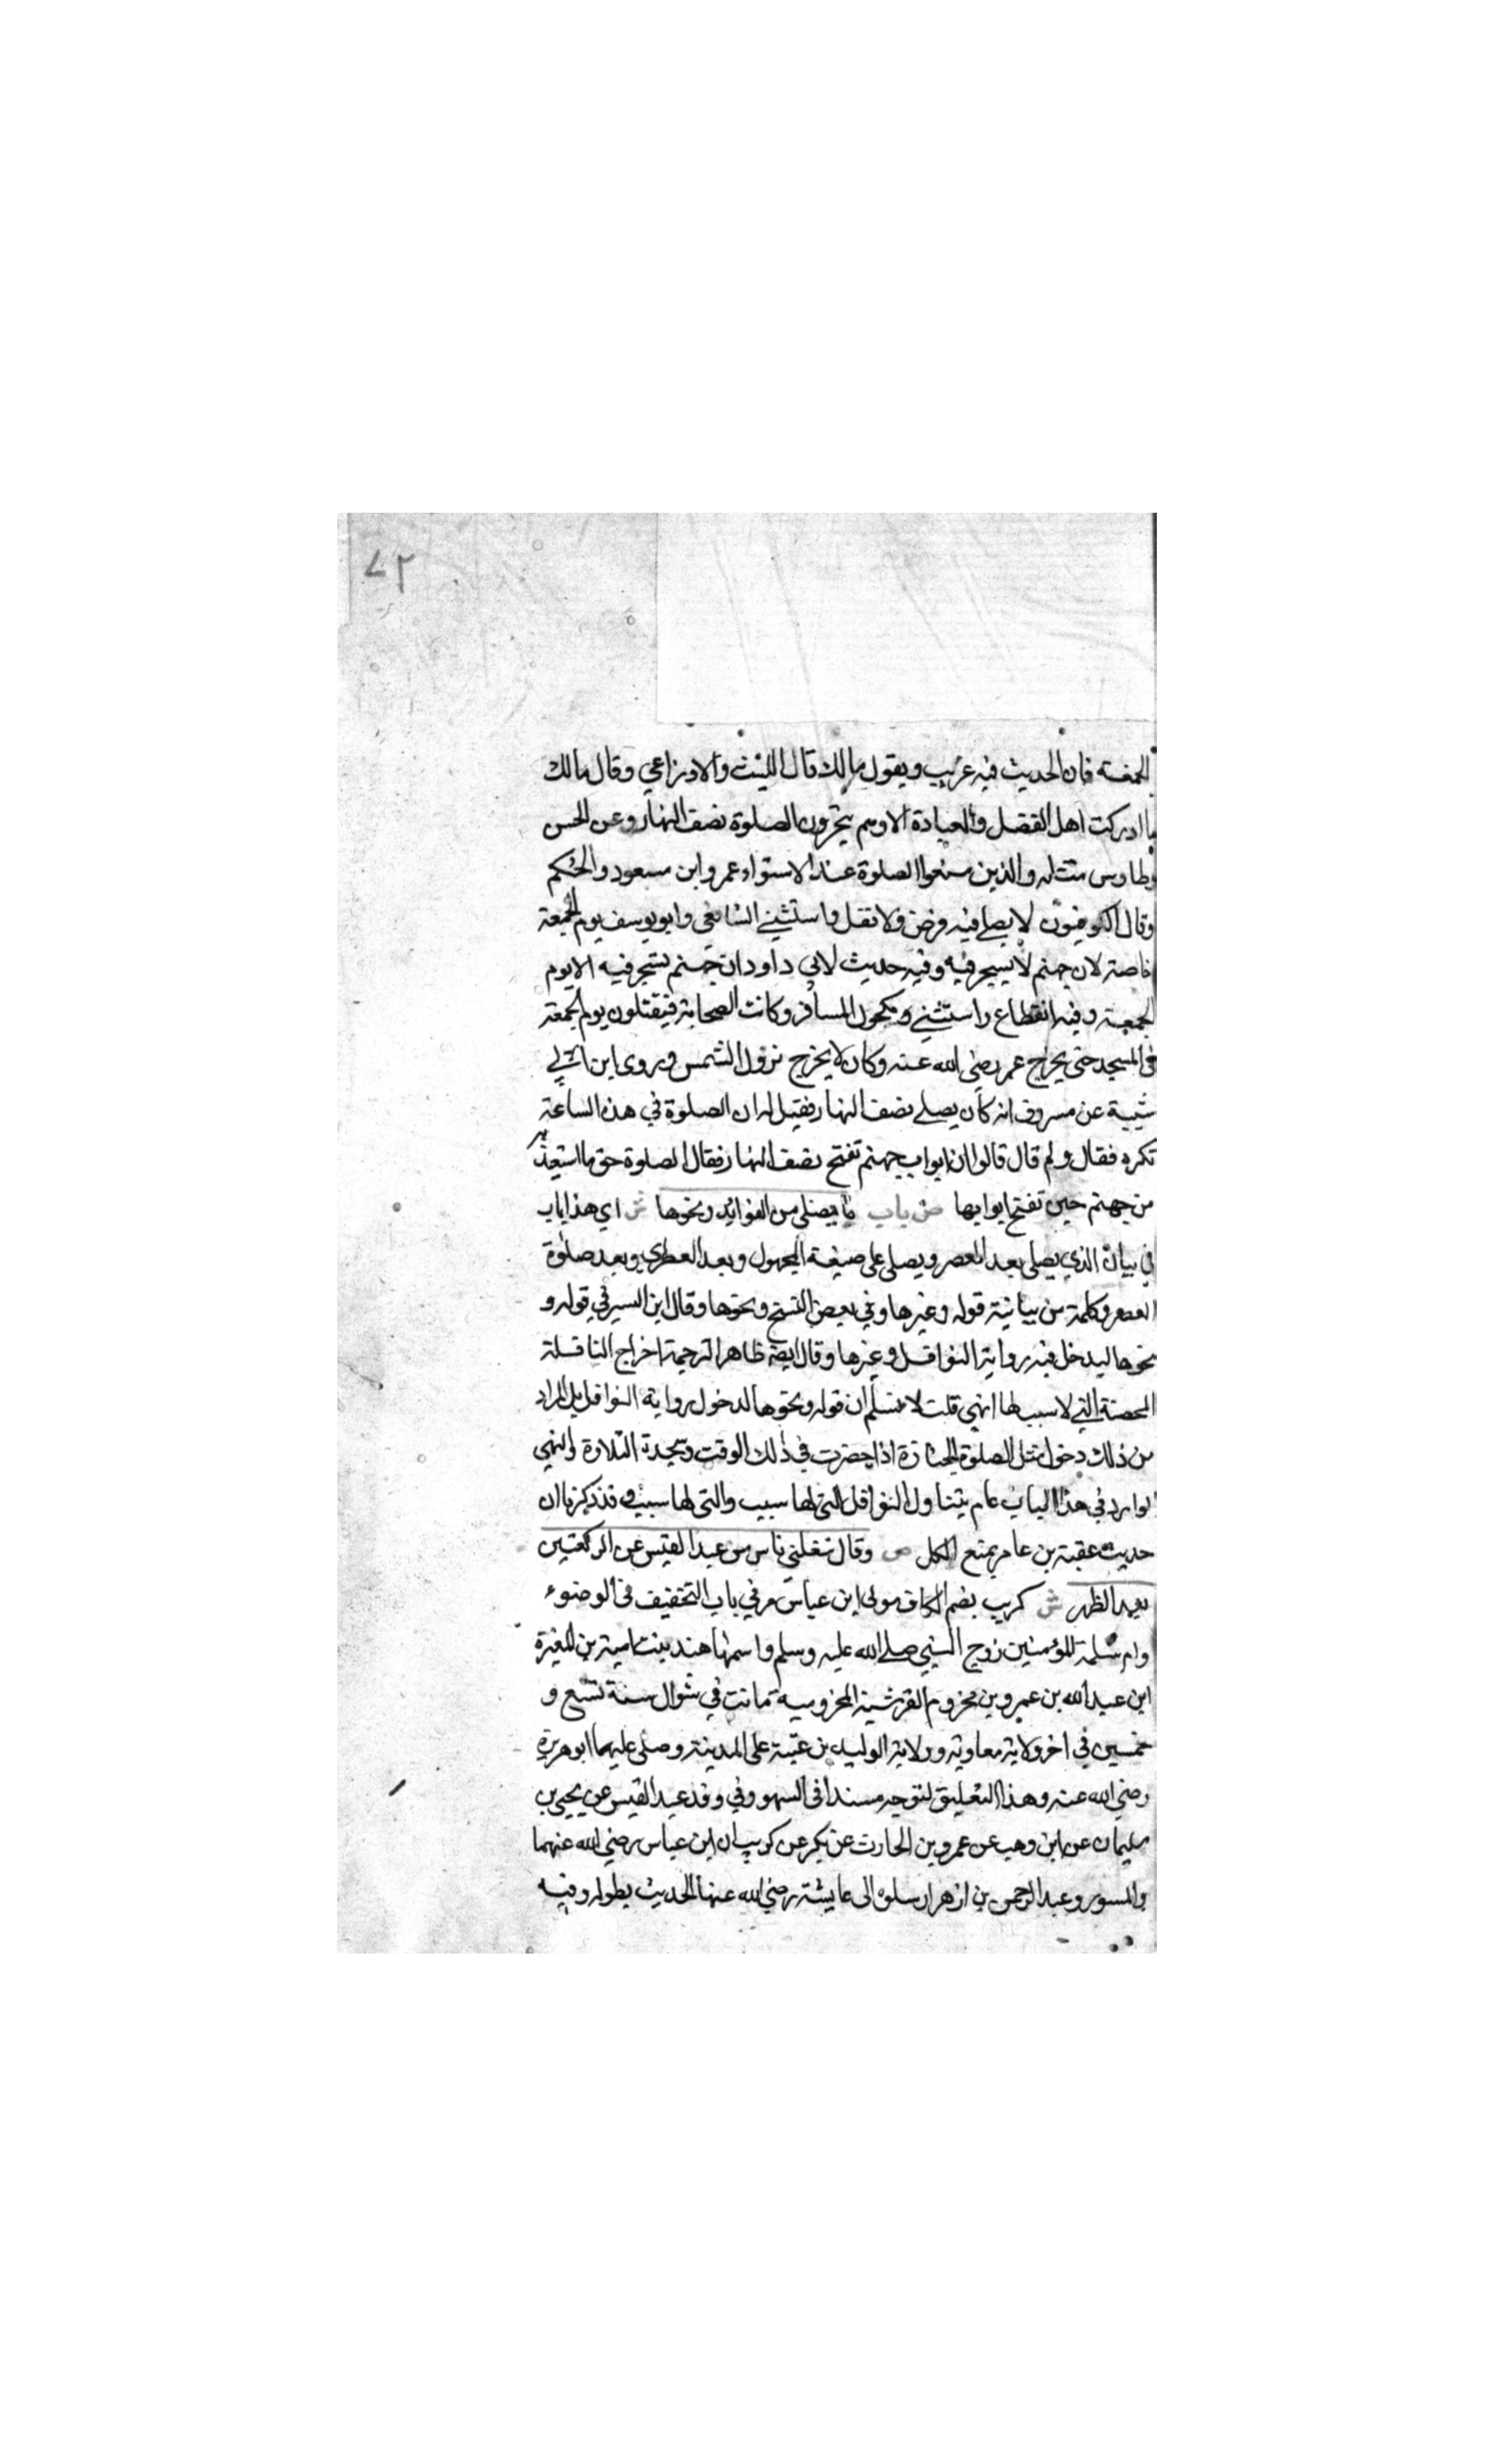 ٧٢
الجمعة فان الحديث فيه غريب وبقول مالك قال الليث والاوزاعي وقال مالك
ما ادركت اهل الفضل والعبادة الا وهم يتحرون الصلوة نصف النهار وعن الحسن
وطاوس مثله والذين منعوا الصلوة عند الاستواء عمر وابن مسعود والحكم
وقال الكوفيون لا يصلى فيه فرض ولا نفل واستثنى الشافعى وابو يوسف يوم الجمعة
خاصة لان جهنم لا يسجر فيه وفيه حديث لابى داود ان جهنم تسجر فيه الا يوم
الجمعة وفيه انقطاع واستثنى مكحول المسافر وكانت الصحابة فيقتلون يوم الجمعة
فى المسجد حتى يخرج عمر رضى الله عنه وكان لا يخرج نزول الشمس وروى ابن ابى
شيبة عن مسروق انه كان يصلى نصف النهار فقيل له ان الصلوة في هذه الساعة
تكره فقال ولم قال قالوا ان ابواب جهنم تفتح نصف النهار فقال الصلوة حق ما استعيذ به
من جهنم حين تفتح ابوابها ص باب ما يصلى من الفوائد ونحوها ش اي هذا باب
في بيان الذي يصلى بعد العصر ويصلى على صيغة المجهول وبعد العطر اي وبعد صلوة
العصر وكلمة من بيانية قوله وغيرها وفي بعض النسخ ونحوها وقال ابن السير في قوله و
نحوها ليدخل فيه رواية النوافل وغيرها وقال ايضا ظاهر الترجمة اخراج النافلة
المحضة التي لا سبب لها انتهى قلت لا نسلم ان قوله ونحوها لدخول رواية النوافل بل المراد
من ذلك دخول مثل الصلوة الجنازة اذا حضرت في ذلك الوقت وسجدة التلاوة والنهي
الوارد في هذا الباب عام يتناول النوافل التى لها سبب والتى لها سبب وقد ذكرنا ان
حديث عقبة بن عامر يمنع الكل ص وقال شغلنى ناس من عبد القيس عن الركعتين
بعد الظهر ش كريب بضم الكاف مولى ابن عباس مر في باب التخفيف فى الوضوء
وام سلمة للؤمنين زوج النبي صلى الله عليه وسلم واسمها هند بنت امية بن المغيرة
ابن عبد الله بن عمرو بن مخزوم القرشية المخزومية ماتت في شوال سنة تسع و
خمسين في اخر ولاية معاوية وولاية الوليد بن عتبة على المدينة وصلى عليها ابو هريرة
رضي الله عنه وهذا التعليق لتوجه مسندا فى السهو وفي وفد عبد القيس عن يحيى بن
سليمان عن ابن وهب عن عمرو بن الحارث عن بكر عن كريب ان ابن عباس رضي الله عنهما
والمسور وعبد الرحمن بن ازهر ارسلوه الى عايشة رضي الله عنها الحديث بطوله وفيه